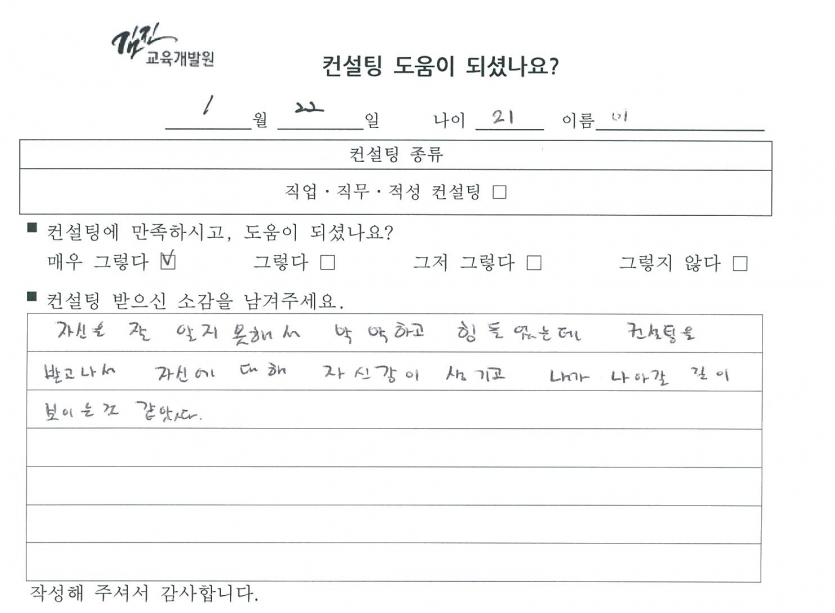 김진
교육개발원
컨설팅 도움이 되셨나요?
1 월 22 일 나이 21 이름 이
컨설팅 종류
직업·직무·적성 컨설팅 □
■ 컨설팅에 만족하시고, 도움이 되셨나요?
매우 그렇다 ☑ 그렇다 □ 그저 그렇다 □ 그렇지 않다 □
■ 컨설팅 받으신 소감을 남겨주세요.
자신을 잘 알지 못해서 막막하고 힘들었는데 컨설팅을
받고나서 자신에 대해 자신감이 생기고 내가 나아갈 길이
보이는것 같았다.
작성해 주셔서 감사합니다.